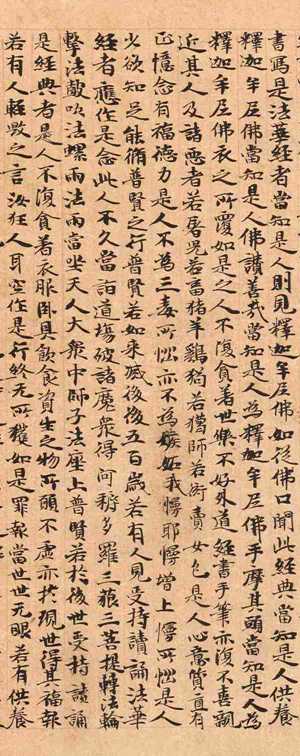 書寫是法華經者當知是人則見釋迦牟尼佛如從佛口聞此經典當知是人供養
釋迦牟尼佛當知是人佛讚善哉當知是人為釋迦牟尼佛手摩其頭當知是人為
釋迦牟尼佛衣之所覆如是之人不復貪著世樂不好外道經書手筆亦復不喜親
近其人及諸惡者若屠兒若畜猪羊鷄狗若獵師若衒賣女色是人心意質直有
正憶念有福德力是人不為三毒所惱亦不為嫉妬我慢耶慢增上慢所惱是人
少欲知足能脩普賢之行普賢若如來滅後後五百歲若有人見受持讀誦法華
經者應作是念此人不久當詣道場破諸魔眾得阿耨多羅三藐三菩提轉法輪
擊法皷吹法螺雨法雨當坐天人大眾中師子法座上普賢若於後世受持讀誦
是經典者是人不復貪著衣服臥具飲食資生之物所願不虛亦於現世得其福報
若有人輕毀之言汝狂人耳空作是行終无所獲如是罪報當世世无眼若有供養